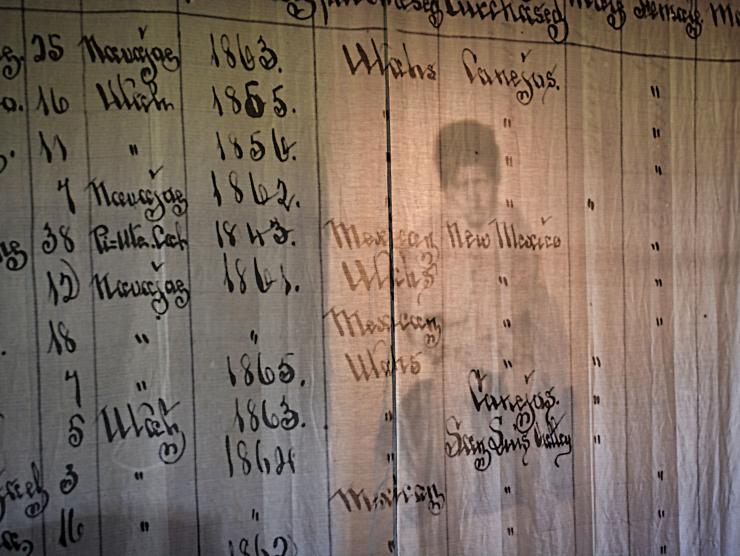 Purchased Male Female
25 Navajoe 1863. Utahs Canejos.
16 Utah 1865. " " "
11 " 1856. " "
7 Navajoe 1862. " "
38 1843. Mexican New Mexico "
12 Navajoe 1861. Utahs " "
18 " " Mexican " "
7 " 1865. Utahs " "
5 Utah 1863. " Canejos. "
3 " 1864 " San Luis Valley "
16 " " Mexican " "
1862 " " "